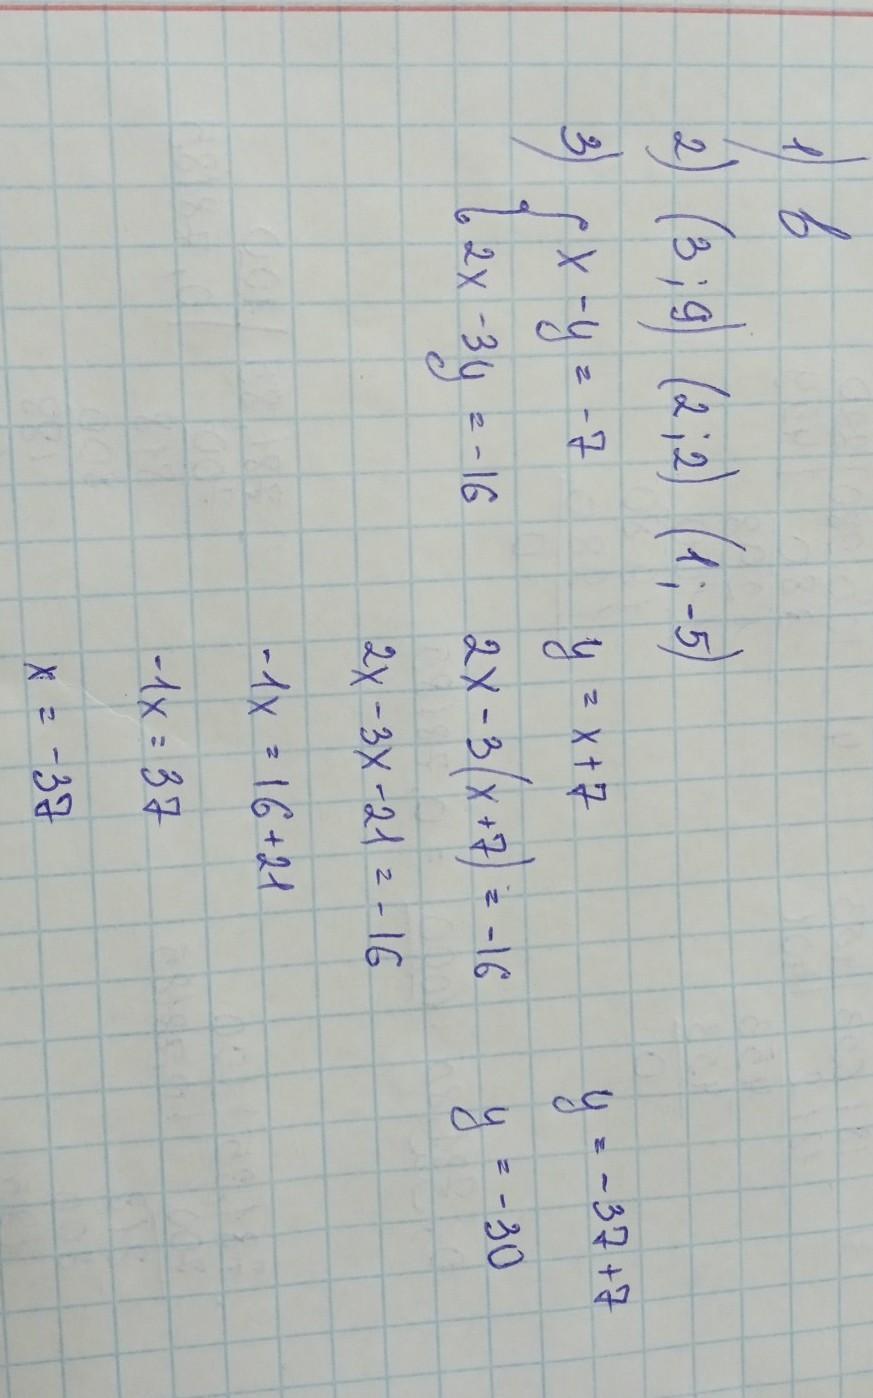 1) в
2) (3;9) (2;2) (1;-5)
3) { x - y = -7
2x - 3y = -16
y = x+7
2x - 3(x+7) = -16
2x - 3x - 21 = -16
-1x = 16+21
-1x = 37
x = -37
y = -37+7
y = -30